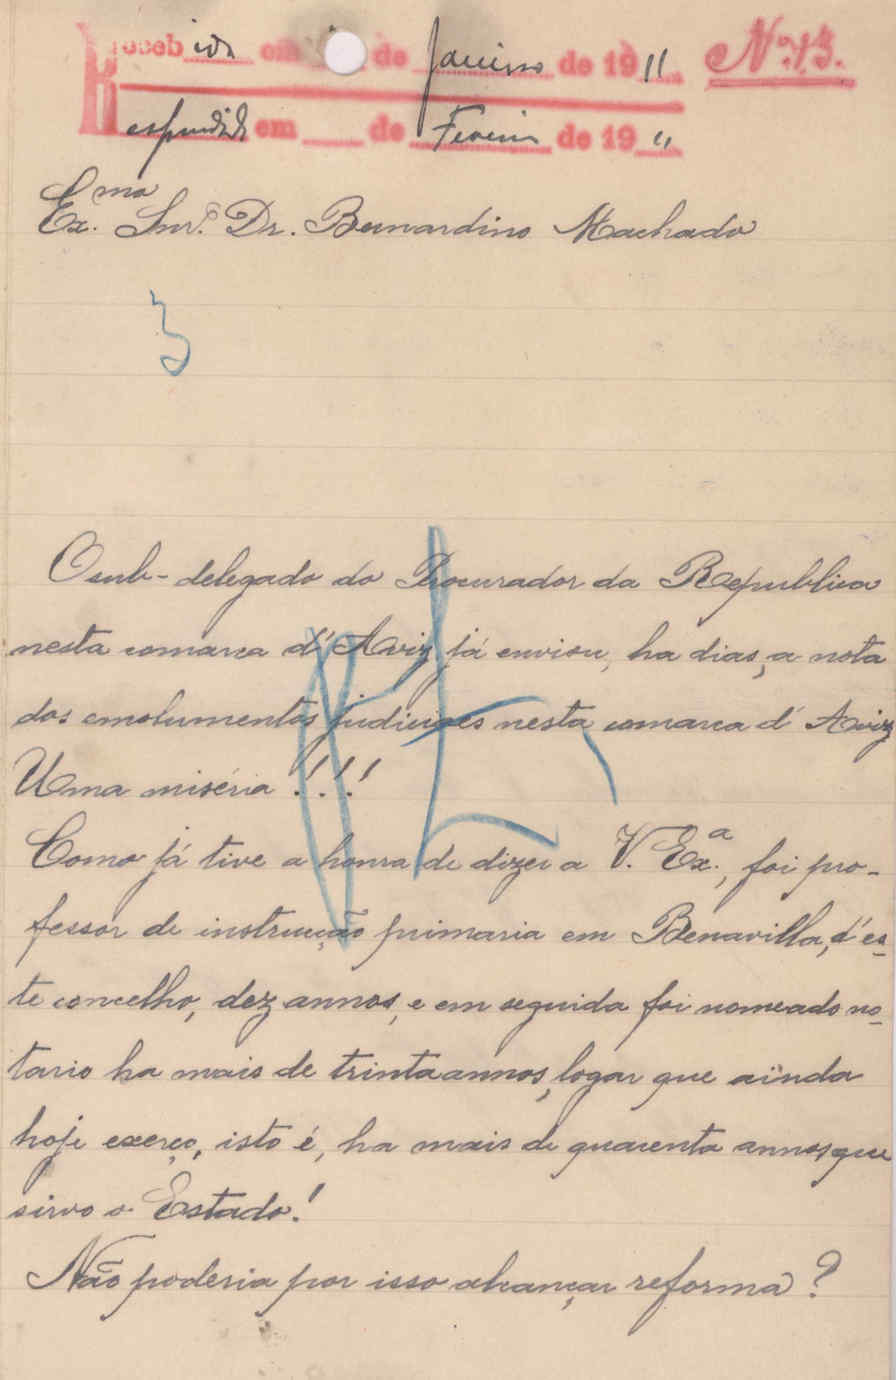 Recebida em de Janeiro de 1911 Nº 73.
Respondida em de Fevereiro de 19 "
Ex.mo Snr. Dr. Bernardino Machado
O sub-delegado do Procurador da Republica
nesta comarca d'Aviz já enviou, ha dias, a nota
dos emolumentos judiciaes nesta comarca d'Aviz
Uma miséria!!!
Como já tive a honra de dizer a V. Ex.a, foi pro-
fessor de instrucção primaria em Benavilla, d'es-
te concelho, dez annos, e em seguida foi nomeado no-
tario ha mais de trinta annos, logar que ainda
hoje exerço, isto é, ha mais de quarenta annos que
sirvo o Estado!
Não poderia por isso alcançar reforma?